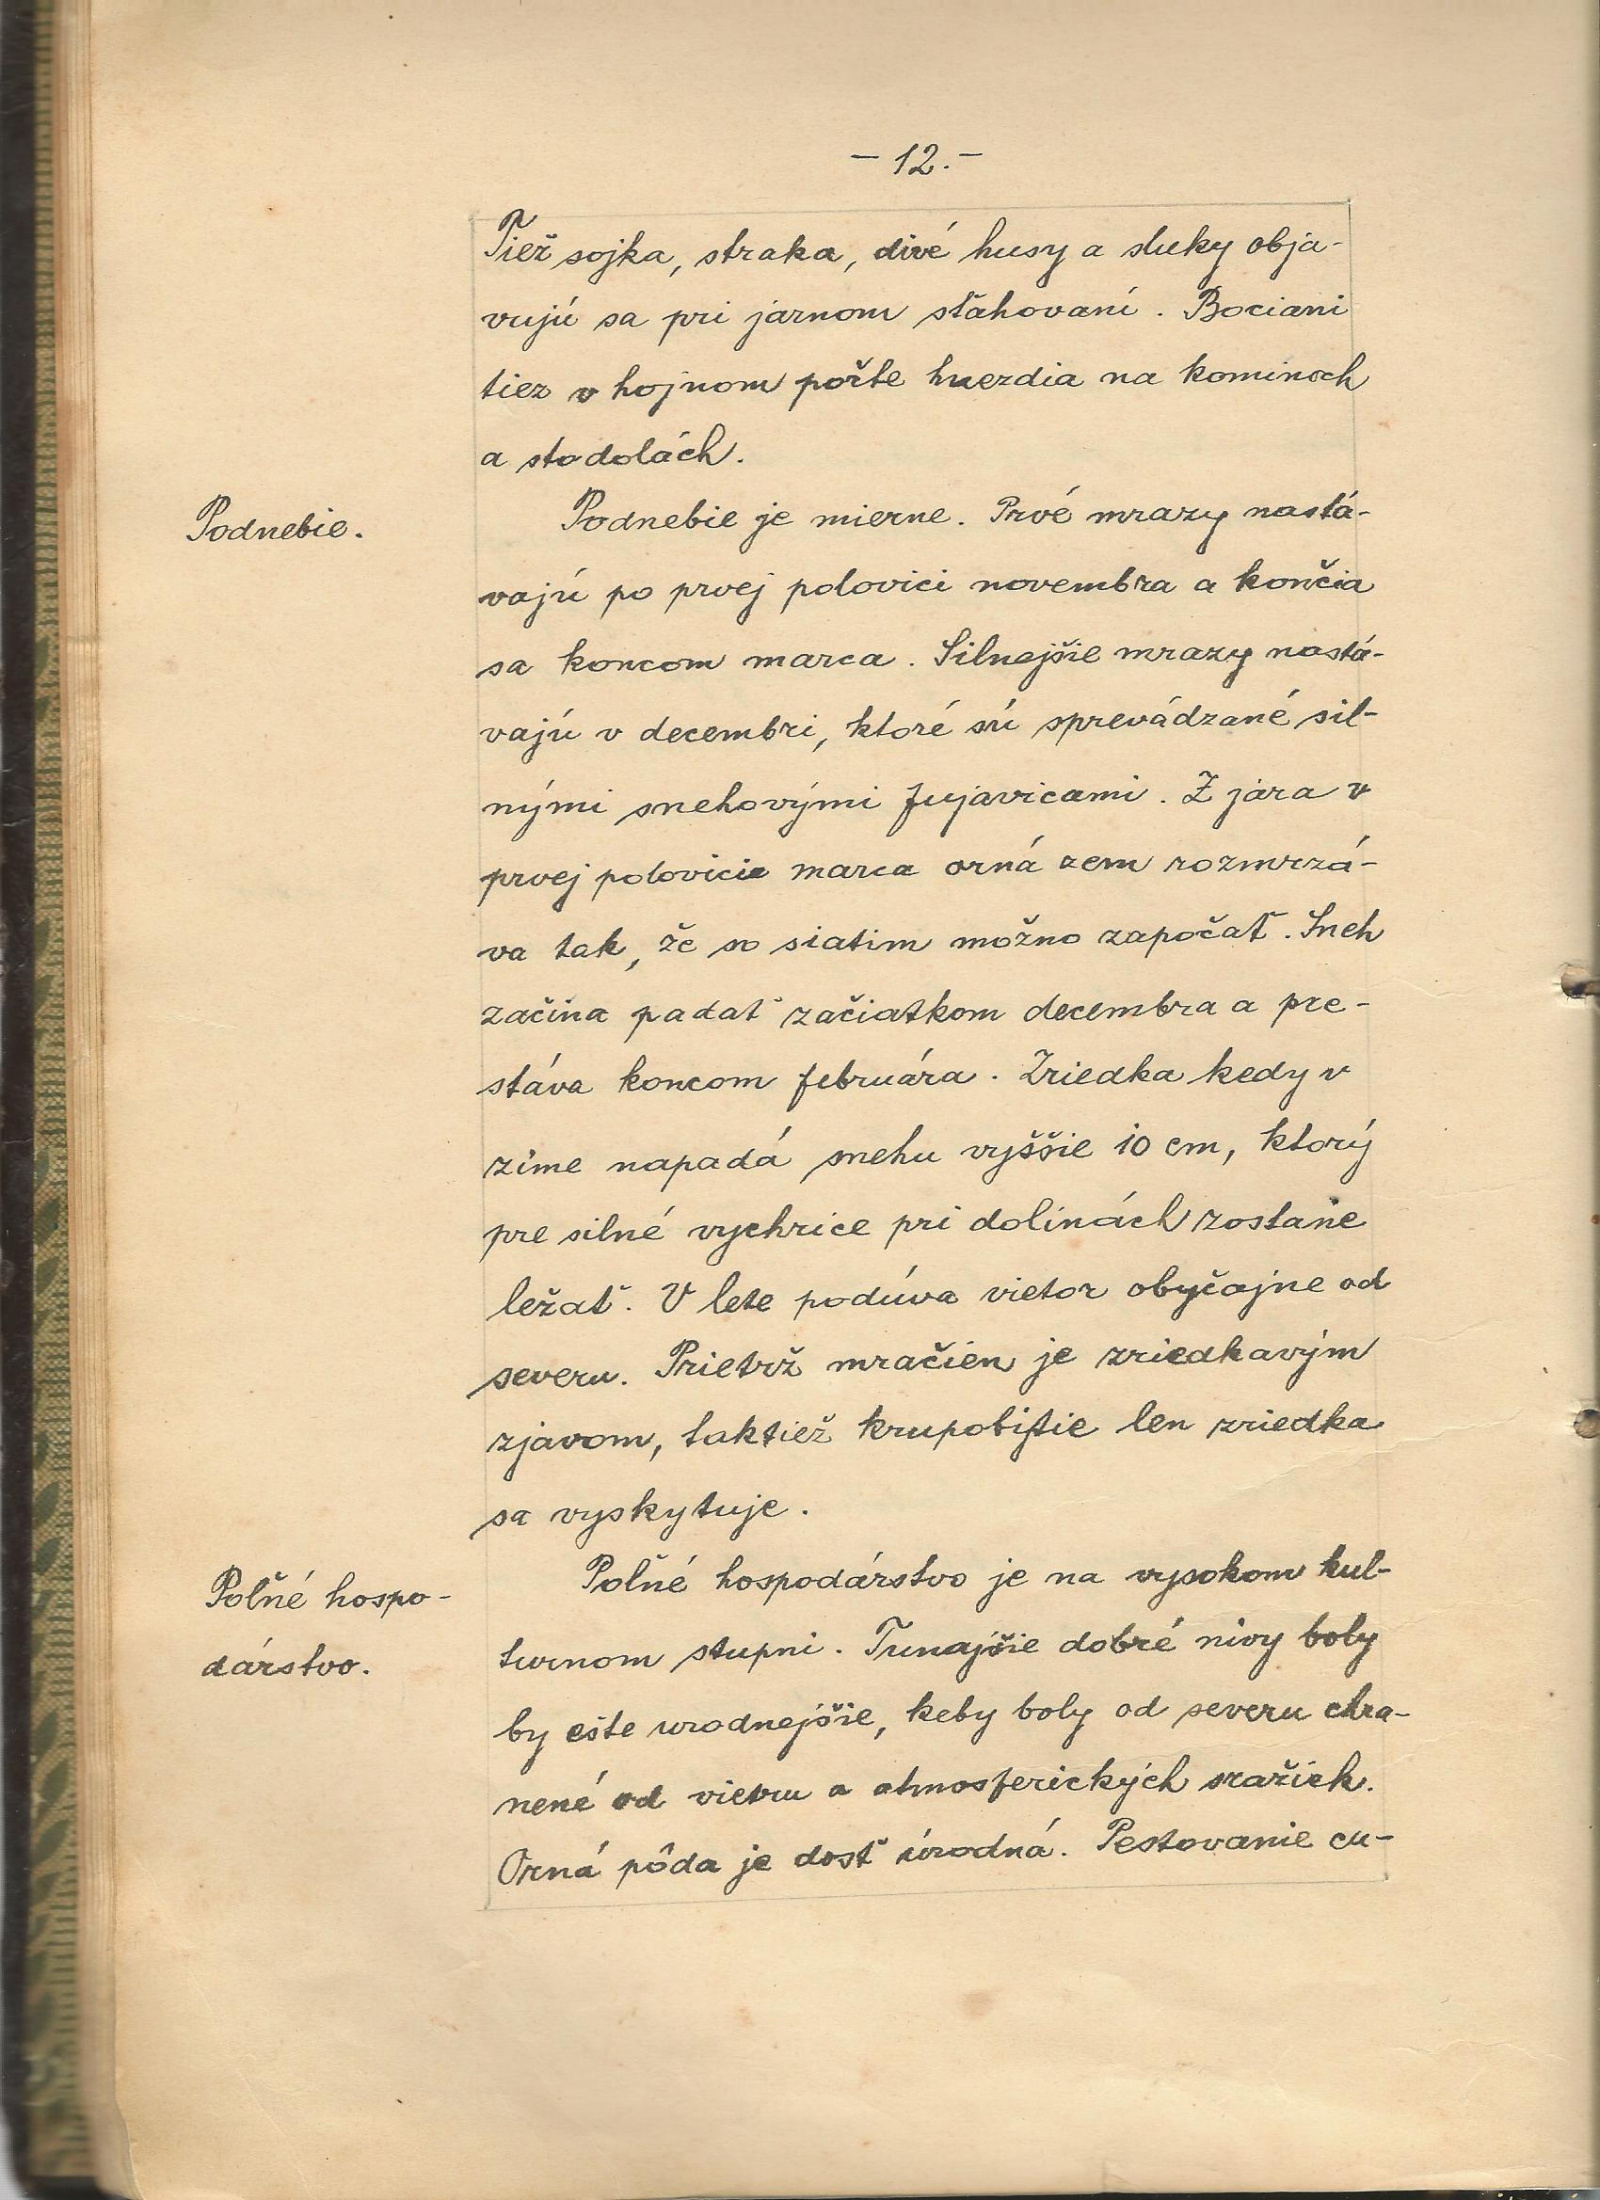 - 12. -
Tiež sojka, straka, divé husy a sluky obja-
vujú sa pri jarnom sťahovaní. Bociani
tiez v hojnom počte hnezdia na kominoch
a stodolách.
Podnebie.
Podnebie je mierne. Prvé mrazy nastá-
vajú po prvej polovici novembra a končia
sa koncom marca. Silnejšie mrazy nastá-
vajú v decembri, ktoré sú sprevádzané sil-
nými snehovými fujavicami. Z jara v
prvej polovicie marca orná zem rozmrzá-
va tak, že so siatim možno započať. Sneh
začína padať začiatkom decembra a pre-
stáva koncom februára. Zriedka kedy v
zime napadá snehu vyššie 10 cm, ktorý
pre silné vychrice pri dolinách zostane
ležať. V lete podúva vietor obyčajne od
severu. Prietrž mračien je zriedkavým
zjavom, taktiež krupobitie len zriedka
sa vyskytuje.
Poľné hospo-
dárstvo.
Poľné hospodárstvo je na vysokom kul-
turnom stupni. Tunajšie dobré nivy boly
by ešte urodnejšie, keby boly od severu chra-
nené od vietru a atmosferických sražiek.
Orná pôda je dosť úrodná. Pestovanie cu-